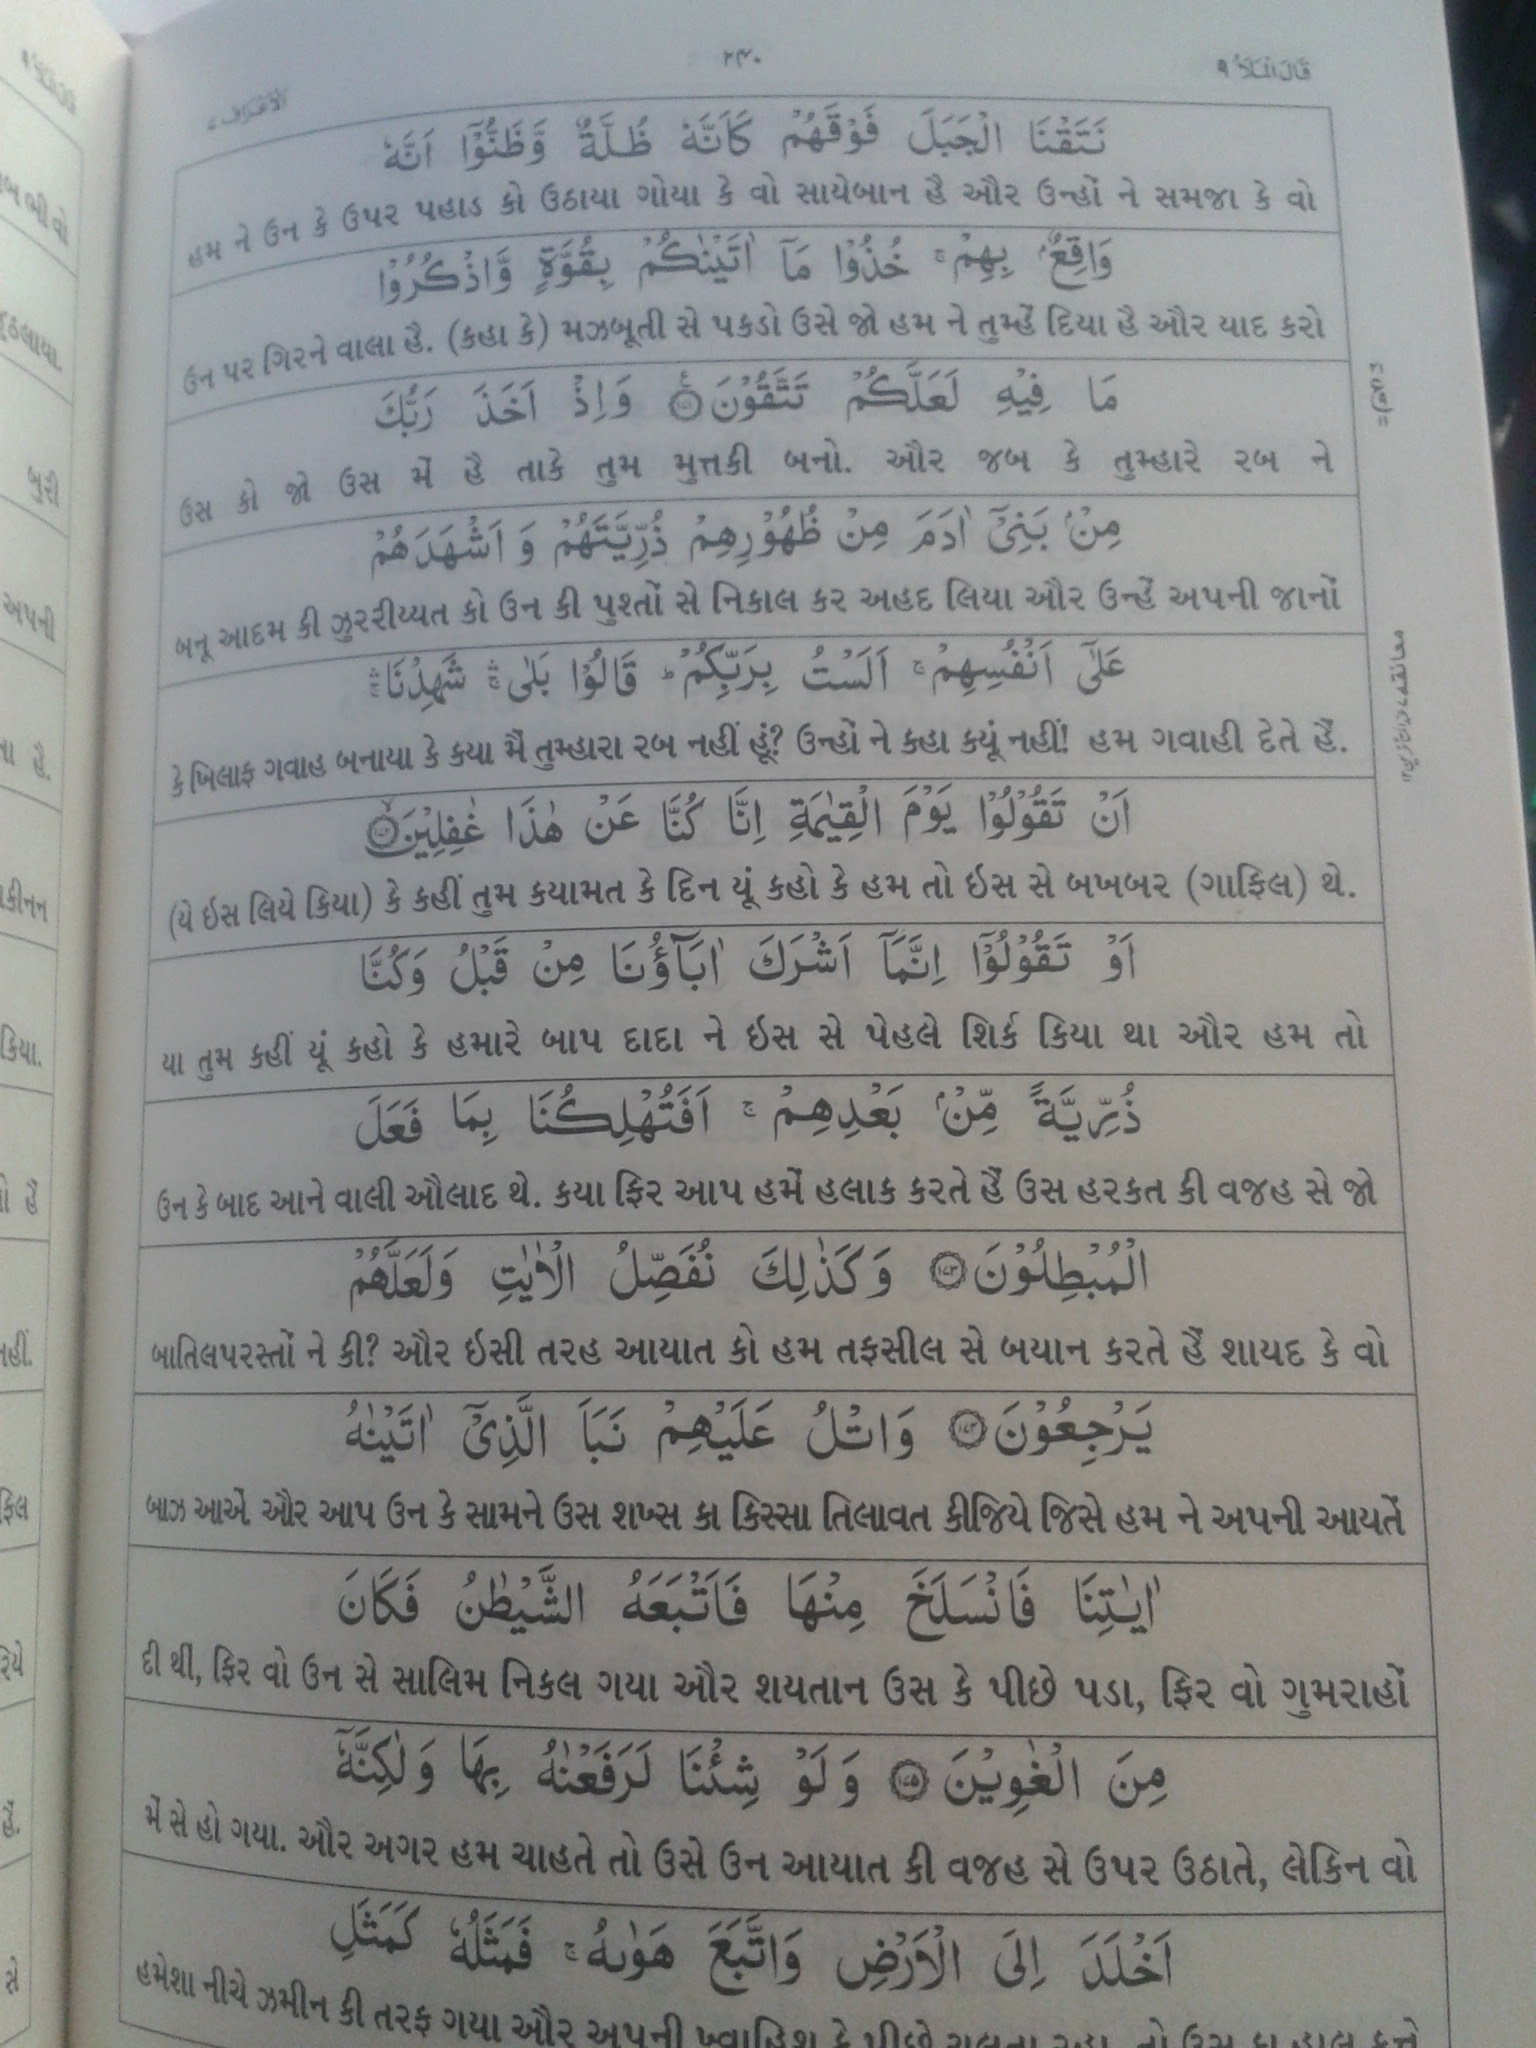 قال الملأ ٩
٢٣٠
الاعراف ٧
نَتَقْنَا الْجَبَلَ فَوْقَهُمْ كَاَنَّهٗ ظُلَّةٌ وَّظَنُّوْۤا اَنَّهٗ
હમ ને ઉન કે ઉપર પહાડ કો ઉઠાયા ગોયા કે વો સાયેબાન હૈ ઔર ઉન્હોં ને સમજા કે વો
وَاقِعٌۢ بِهِمْ ۚ خُذُوْا مَاۤ اٰتَيْنٰكُمْ بِقُوَّةٍ وَّاذْكُرُوْا
ઉન પર ગિરને વાલા હૈ. (કહા કે) મઝબૂતી સે પકડો ઉસે જો હમ ને તુમ્હેં દિયા હૈ ઔર યાદ કરો
مَا فِيْهِ لَعَلَّكُمْ تَتَّقُوْنَ ۝ وَاِذْ اَخَذَ رَبُّكَ
ઉસ કો જો ઉસ મેં હૈ તાકે તુમ મુત્તકી બનો. ઔર જબ કે તુમ્હારે રબ ને
مِنْۢ بَنِيْۤ اٰدَمَ مِنْ ظُهُوْرِهِمْ ذُرِّيَّتَهُمْ وَ اَشْهَدَهُمْ
બનૂ આદમ કી ઝુરરીય્યત કો ઉન કી પુશ્તોં સે નિકાલ કર અહદ લિયા ઔર ઉન્હેં અપની જાનોં
عَلٰۤى اَنْفُسِهِمْ ۚ اَلَسْتُ بِرَبِّكُمْ ؕ قَالُوْا بَلٰى ۛۚ شَهِدْنَا ۛۚ
કે ખિલાફ ગવાહ બનાયા કે કયા મૈં તુમ્હારા રબ નહીં હૂં? ઉન્હોં ને કહા કયૂં નહીં! હમ ગવાહી દેતે હૈં.
اَنْ تَقُوْلُوْا يَوْمَ الْقِيٰمَةِ اِنَّا كُنَّا عَنْ هٰذَا غٰفِلِيْنَ ۝
(યે ઇસ લિયે કિયા) કે કહીં તુમ કયામત કે દિન યૂં કહો કે હમ તો ઇસ સે બેખબર (ગાફિલ) થે.
اَوْ تَقُوْلُوْۤا اِنَّمَاۤ اَشْرَكَ اٰبَآؤُنَا مِنْ قَبْلُ وَكُنَّا
યા તુમ કહીં યૂં કહો કે હમારે બાપ દાદા ને ઇસ સે પેહલે શિર્ક કિયા થા ઔર હમ તો
ذُرِّيَّةً مِّنْۢ بَعْدِهِمْ ۚ اَفَتُهْلِكُنَا بِمَا فَعَلَ
ઉન કે બાદ આને વાલી ઔલાદ થે. કયા ફિર આપ હમેં હલાક કરતે હૈં ઉસ હરકત કી વજહ સે જો
الْمُبْطِلُوْنَ ۝١٧٣ وَكَذٰلِكَ نُفَصِّلُ الْاٰيٰتِ وَلَعَلَّهُمْ
બાતિલપરસ્તોં ને કી? ઔર ઇસી તરહ આયાત કો હમ તફસીલ સે બયાન કરતે હૈં શાયદ કે વો
يَرْجِعُوْنَ ۝١٧٤ وَاتْلُ عَلَيْهِمْ نَبَاَ الَّذِيْۤ اٰتَيْنٰهُ
બાઝ આએં ઔર આપ ઉન કે સામને ઉસ શખ્સ કા કિસ્સા તિલાવત કીજિયે જિસે હમ ને અપની આયતેં
اٰيٰتِنَا فَانْسَلَخَ مِنْهَا فَاَتْبَعَهُ الشَّيْطٰنُ فَكَانَ
દી થીં, ફિર વો ઉન સે સાલિમ નિકલ ગયા ઔર શયતાન ઉસ કે પીછે પડા, ફિર વો ગુમરાહોં
مِنَ الْغٰوِيْنَ ۝١٧٥ وَلَوْ شِئْنَا لَرَفَعْنٰهُ بِهَا وَلٰكِنَّهٗۤ
મેં સે હો ગયા. ઔર અગર હમ ચાહતે તો ઉસે ઉન આયાત કી વજહ સે ઉપર ઉઠાતે, લેકિન વો
اَخْلَدَ اِلَى الْاَرْضِ وَاتَّبَعَ هَوٰىهُ ۚ فَمَثَلُهٗ كَمَثَلِ
હમેશા નીચે ઝમીન કી તરફ ગયા ઔર અપની ખ્વાહિશ કે પીછે